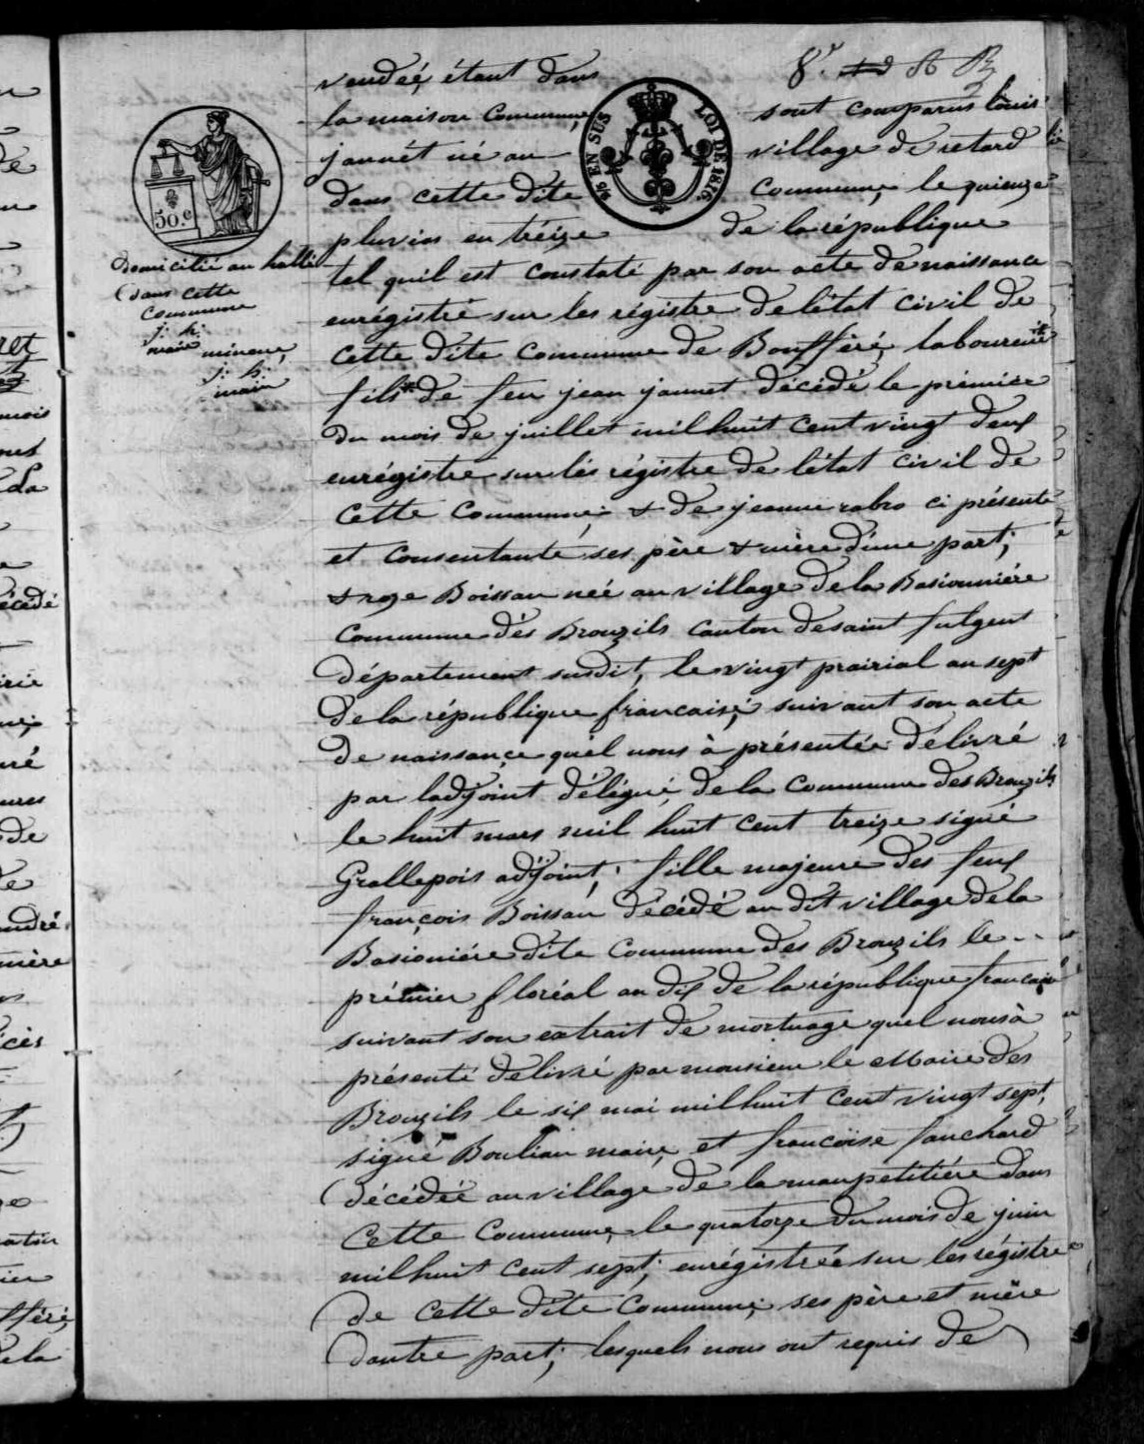 8.e
vendeé, étant dans
la maison Commune, sont comparus louis
jannét né au village de retard
dans cette dite Commune, le quienze
pluvios en tréize de la république
EN SUS
LOI DE 1816
50.c
domicilié au hallé
dans cette
commune
j. h.
maire
mineur,
j. h.
maire
tel quil est constaté par son acte de naissance
enrégistré sur les régistre de létat civil de
cette dite commune de Boufféré, laboureur
fils de feu jean jannet décédé le prémiér
du mois de juillet mil huit cent vingt deux
enrégistre sur lés régistre de létat civil de
cette commune; & de jeanne rabro ci présente
et consentante ses père & mère d'une part;
& roze Boissau néé au village de la Basionniére
commune dés Brouzils canton de saint fulgent
département susdit, le vingt prairial an sept
de la république francaise, suivant son acte
de naissance quél nous à présentée délivré
par ladjoint délégué de la Commune des Brouzils
le huit mars mil huit cent treize signé
Grallepois adjoint; fille majeure des feux
françois Boissau décédé au dit village de la
Basioniére dite commune des Brouzils le
prémier floréal an dix de la république francaise
suivant son extrait de mortuage quel nous à
présenté délivré par monsieur le Maire des
Brouzils le six mai mil huit cent vingt sept,
signé Boulian maire, et francoise fauchard
décédée au village de la maupetitiére dans
cette Commune, le quatorze du mois de juin
mil huit cent sept; enrégistrée sur les régistre
de cette dite Commune; ses père et mère
dautre part; lesquels nous ont requis de